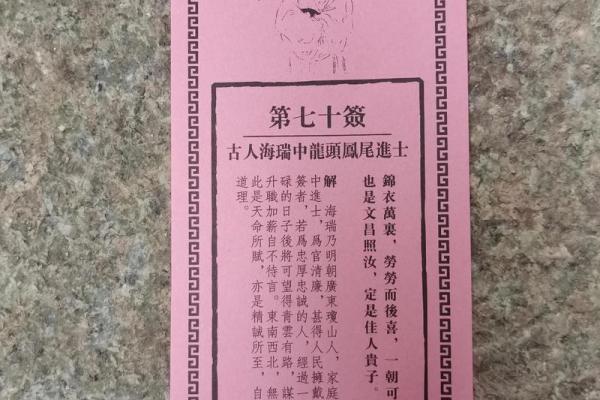 第七十簽
古人海瑞中龍頭鳳尾進士
錦衣萬裏，勞勞而後喜，一朝可
也是文昌照汝，定是佳人貴子。
解　海瑞乃明朝廣東瓊山人，家庭
中進士，爲官清廉，甚得人民擁戴
簽者，若爲忠厚忠誠的人，經過一
碌的日子後將可望得青雲有路，謀
升職加薪自不待言。東南西北，無
此是天命所賦，亦是精誠所至，自
道理。